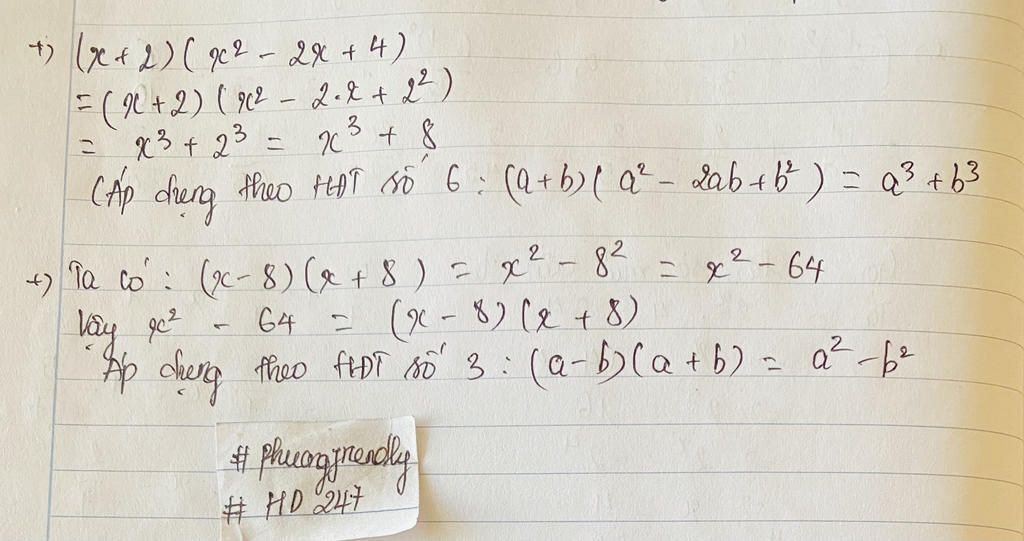 +) (x + 2)(x² - 2x + 4)
= (x + 2)(x² - 2.x + 2²)
= x³ + 2³ = x³ + 8
(Áp dụng theo HĐT số 6 : (a+b)(a² - 2ab + b²) = a³ + b³
+) Ta có : (x - 8)(x + 8) = x² - 8² = x² - 64
Vậy x² - 64 = (x - 8)(x + 8)
Áp dụng theo HĐT số 3 : (a - b)(a + b) = a² - b²
# phuongfriendly
# HD 247